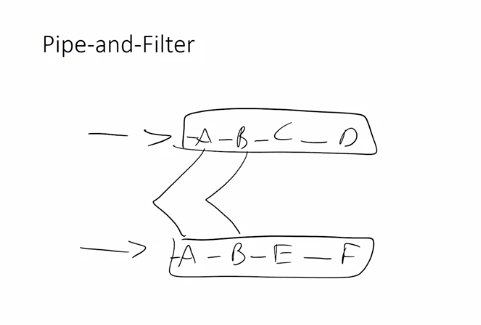 Pipe-and-Filter
-A-B-C-D
-A-B-E-F